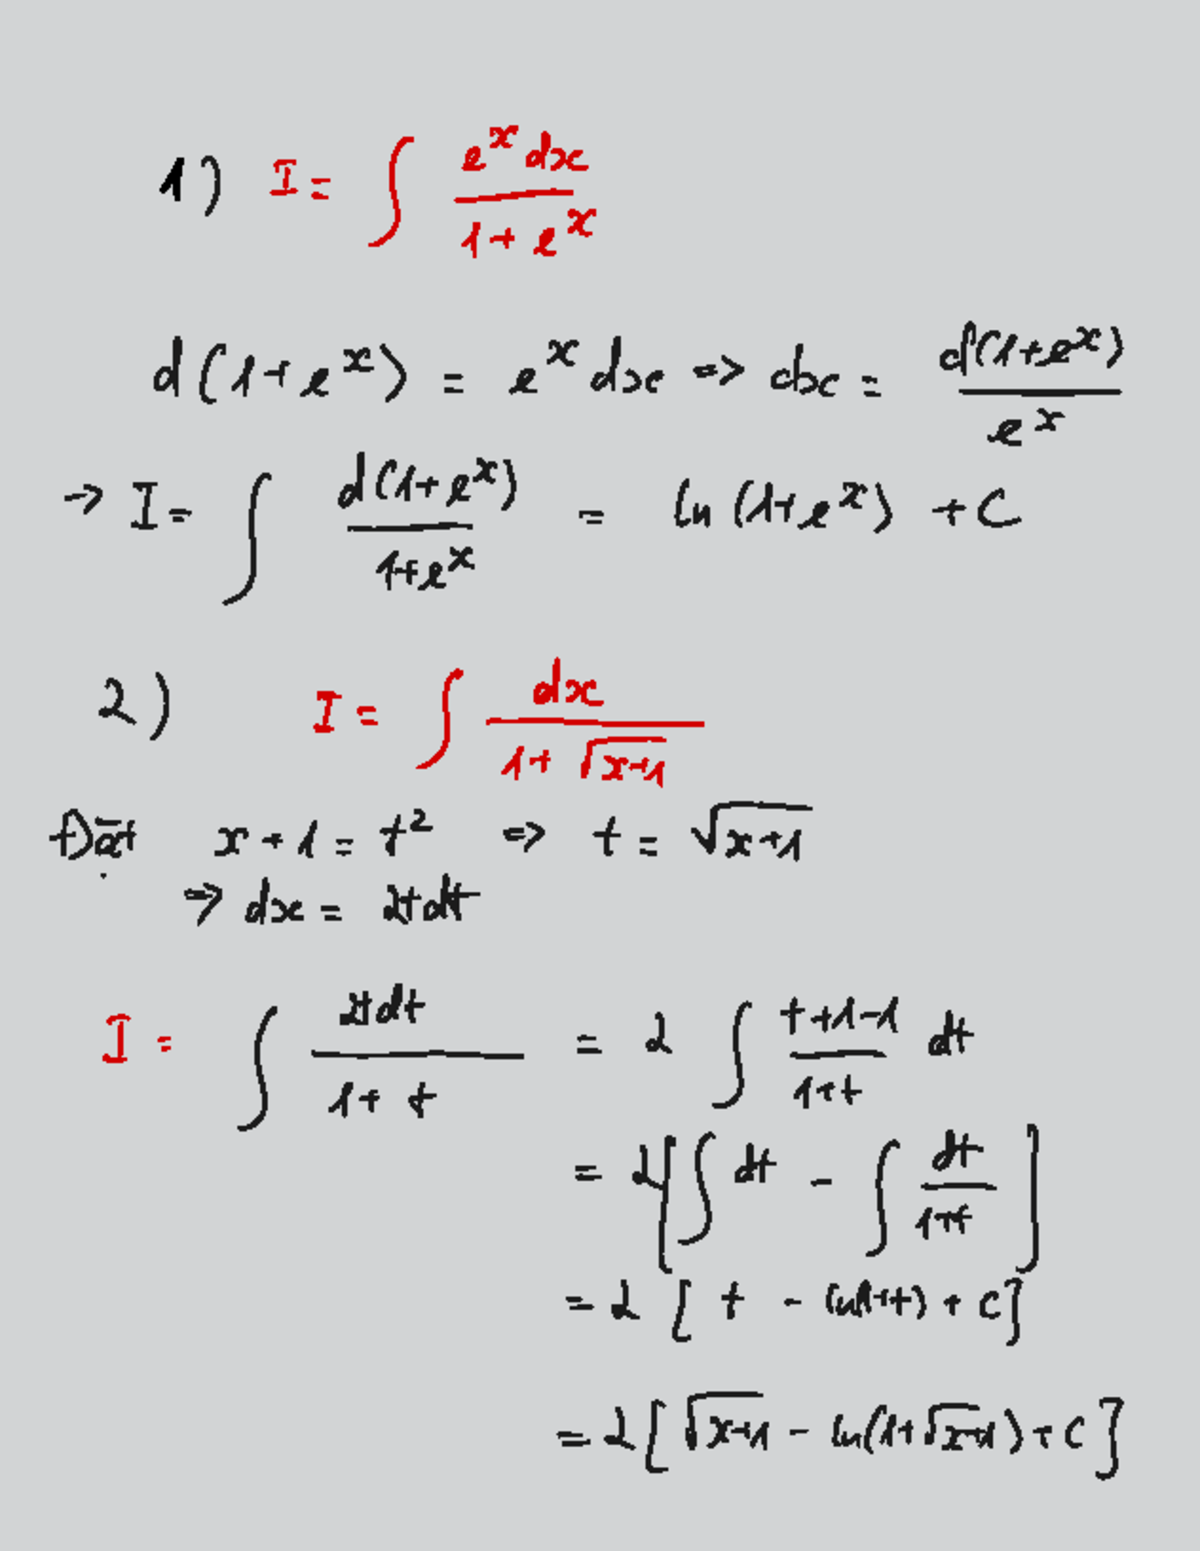 1) I = ∫ e^x dx / (1 + e^x)
d(1+e^x) = e^x dx => dx = d(1+e^x) / e^x
→ I = ∫ d(1+e^x) / (1+e^x) = ln(1+e^x) + C
2) I = ∫ dx / (1 + √(x+1))
Đặt x + 1 = t² => t = √(x+1)
=> dx = 2tdt
I = ∫ 2tdt / (1 + t) = 2 ∫ (t+1-1) / (1+t) dt
= 2[∫ dt - ∫ dt / (1+t)]
= 2 [t - ln(1+t) + C]
= 2[√(x+1) - ln(1+√(x+1)) + C]